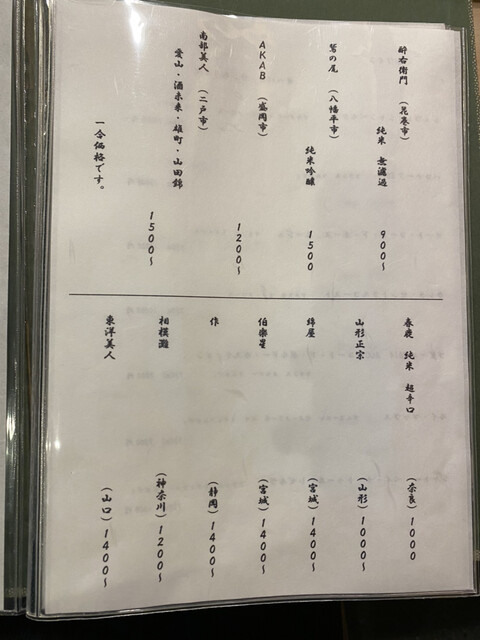 酔右衛門 (花巻市)
純米 無濾過 900~
鷲の尾 (八幡平市)
純米吟醸 1500
AKABU (盛岡市)
1200~
南部美人 (二戸市)
愛山・酒未来・雄町・山田錦
1500~
一合価格です。
春鹿 純米 超辛口 (奈良) 1000
山形正宗 (山形) 1000~
綿屋 (宮城) 1400~
伯楽星 (宮城) 1400~
作 (静岡) 1400~
相模灘 (神奈川) 1200~
東洋美人 (山口) 1400~